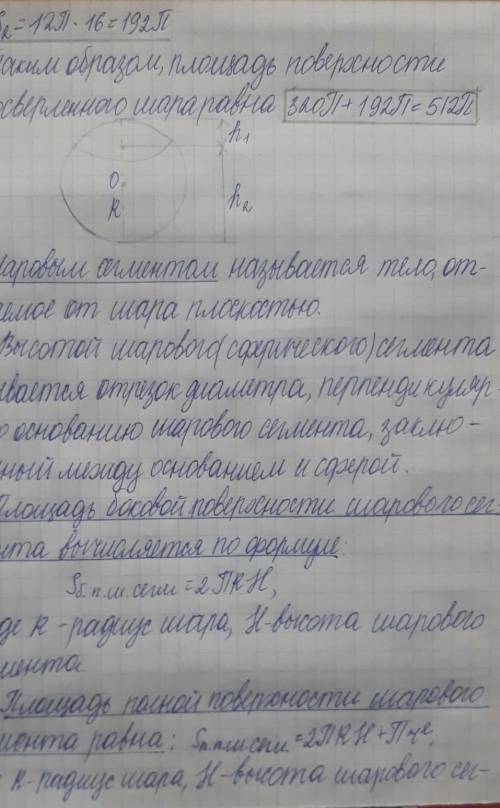 S₂=12П·16=192П
таким образом, площадь поверхности
осверленного шара равна 320П+192П=512П
h₁
O
R
h₂
Шаровым сегментом называется тело, от-
аемое от шара плоскостью.
Высотой шарового(сферического)сегмента
ывается отрезок диаметра, перпендикуляр-
о основанию шарового сегмента, заклю-
ный между основанием и сферой.
Площадь боковой поверхности шарового сег-
нта вычисляется по формуле:
Sб.п.ш.сегм=2ПRH,
де R-радиус шара, H-высота шарового
мента.
Площадь полной поверхности шарового
мента равна: Sп.п.ш.сегм=2ПRH+Пч²,
R-радиус шара, H-высота шарового сег-